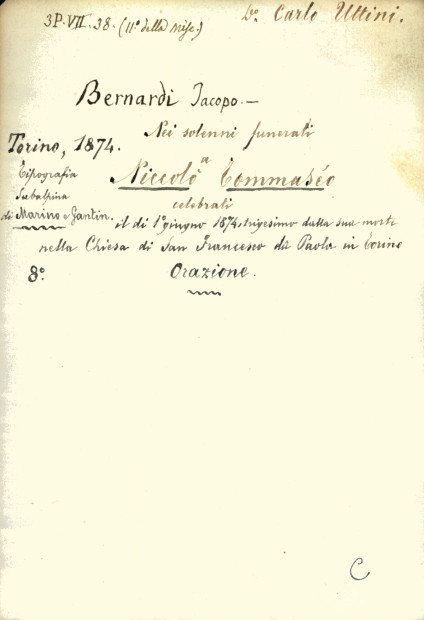 3P. VII. 38. (11º della misc.)
Do. Carlo Uttini.
Bernardi Jacopo.—
Nei solenni funerali
Torino, 1874.
a
Tipografia
Niccolò Tommaséo
Subalpina
celebrati
di Marino e Gantin.
il dì 1º giugno 1874, trigesimo dalla sua morte
nella Chiesa di San Francesco di Paola in Torino
8º.
Orazione.
C